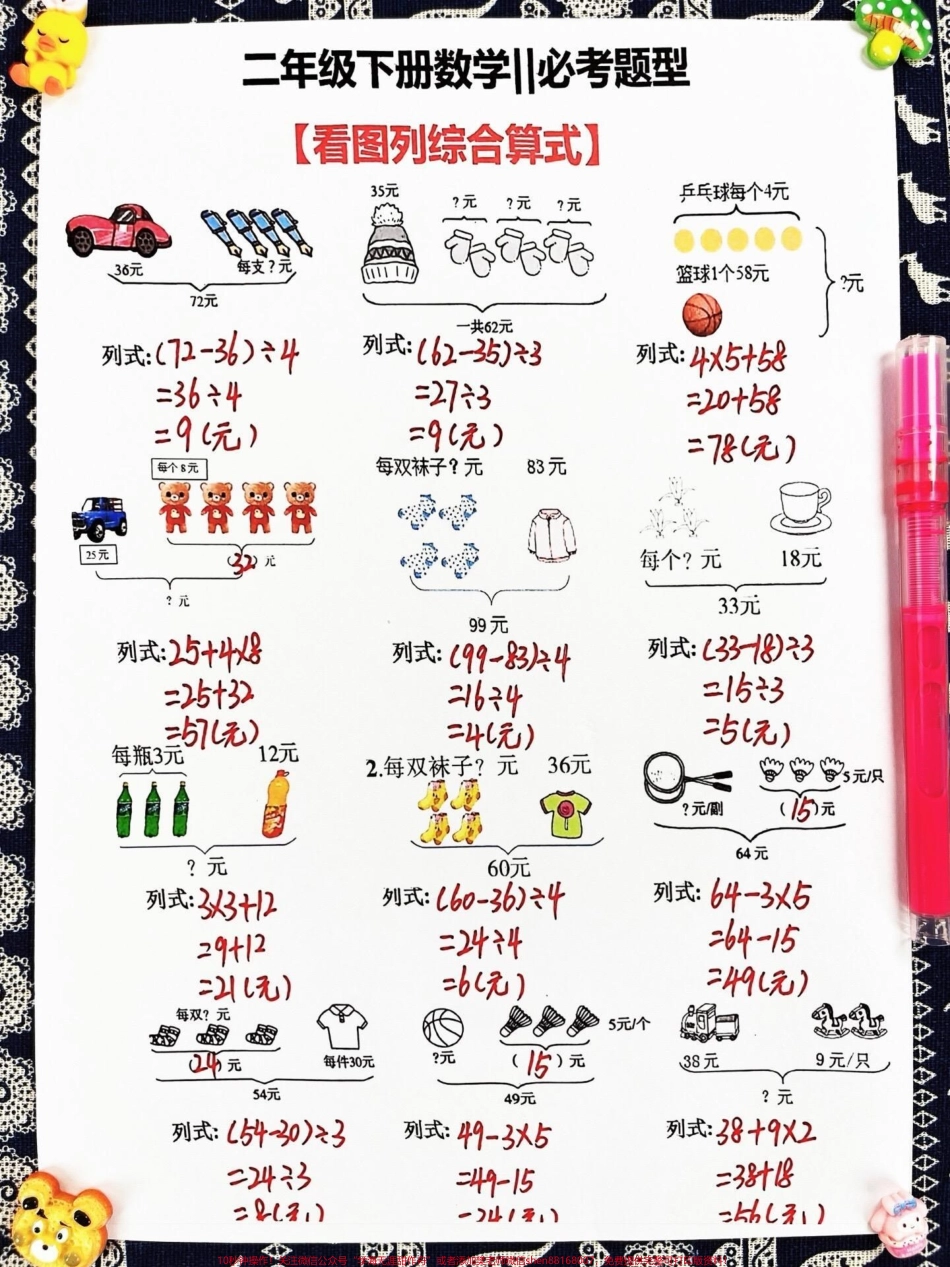 二年级下册数学||必考题型
【看图列综合算式】
36元
每支？元
72元
列式:(72-36)÷4
=36÷4
=9(元)
35元
？元 ？元 ？元
一共62元
列式:(62-35)÷3
=27÷3
=9(元)
乒乓球每个4元
篮球1个58元
?元
列式:4×5+58
=20+58
=78(元)
每个8元
25元
(32)元
？元
列式:25+4×8
=25+32
=57(元)
每双袜子？元 83元
99元
列式:(99-83)÷4
=16÷4
=4(元)
每个？元 18元
33元
列式:(33-18)÷3
=15÷3
=5(元)
每瓶3元 12元
？元
列式:3×3+12
=9+12
=21(元)
2.每双袜子？元 36元
60元
列式:(60-36)÷4
=24÷4
=6(元)
5元/只
？元/副 (15)元
64元
列式:64-3×5
=64-15
=49(元)
每双？元
(24)元 每件30元
54元
列式:(54-30)÷3
=24÷3
=8(元)
5元/个
?元 (15)元
49元
列式:49-3×5
=49-15
=34(元)
38元 9元/只
？元
列式:38+9×2
=38+18
=56(元)